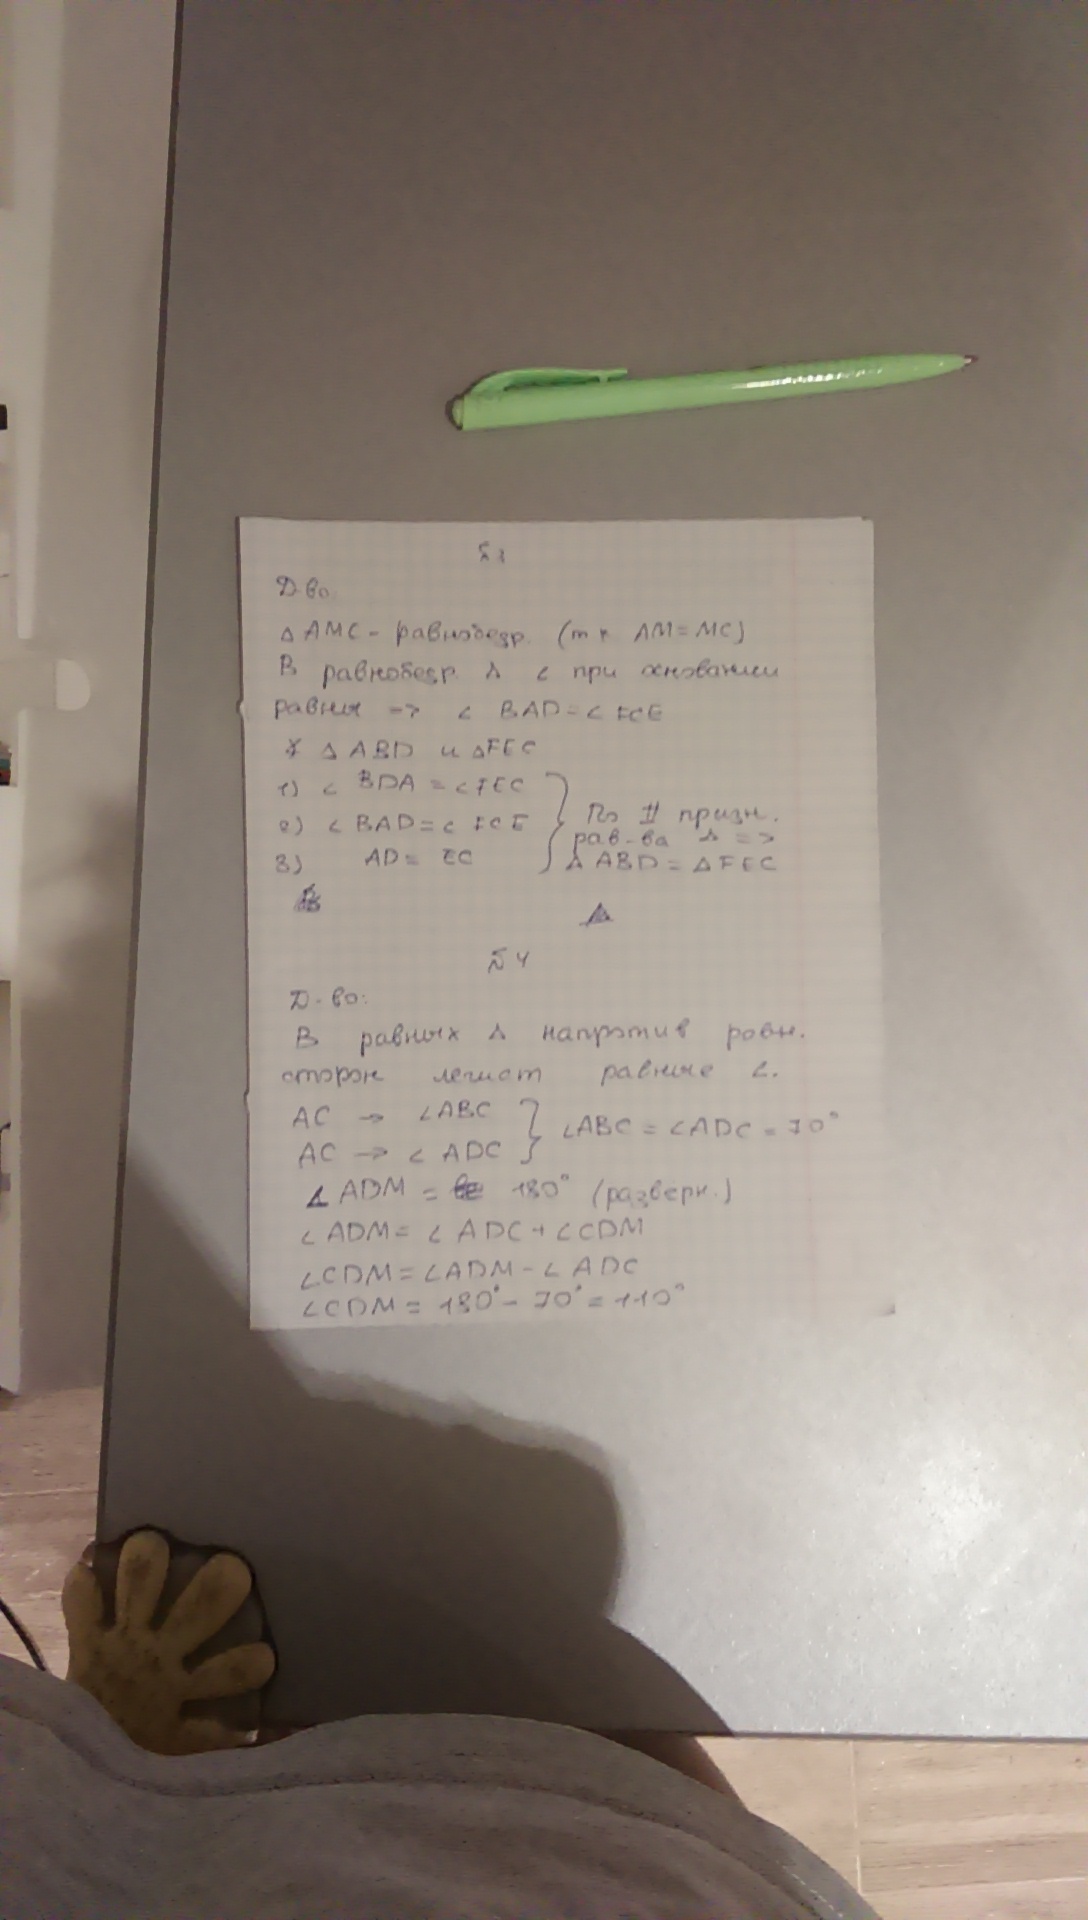 №3
Д-во:
Δ AMC - равнобедр. (т к AM = MC)
В равнобедр. Δ ∠ при основании
равны => ∠ BAD = ∠ FCE
Δ ABD и Δ FEC
1) ∠ BDA = ∠ FEC
2) ∠ BAD = ∠ FCE
3) AD = EC
По II призн.
рав-ва Δ =>
Δ ABD = Δ FEC
№4
Д-во:
В равных Δ напротив равн.
сторон лежат равные ∠.
AC → ∠ABC
AC → ∠ ADC
∠ABC = ∠ADC = 70°
∠ ADM = 180° (разверн.)
∠ ADM = ∠ ADC + ∠CDM
∠CDM = ∠ADM - ∠ ADC
∠CDM = 180° - 70° = 110°